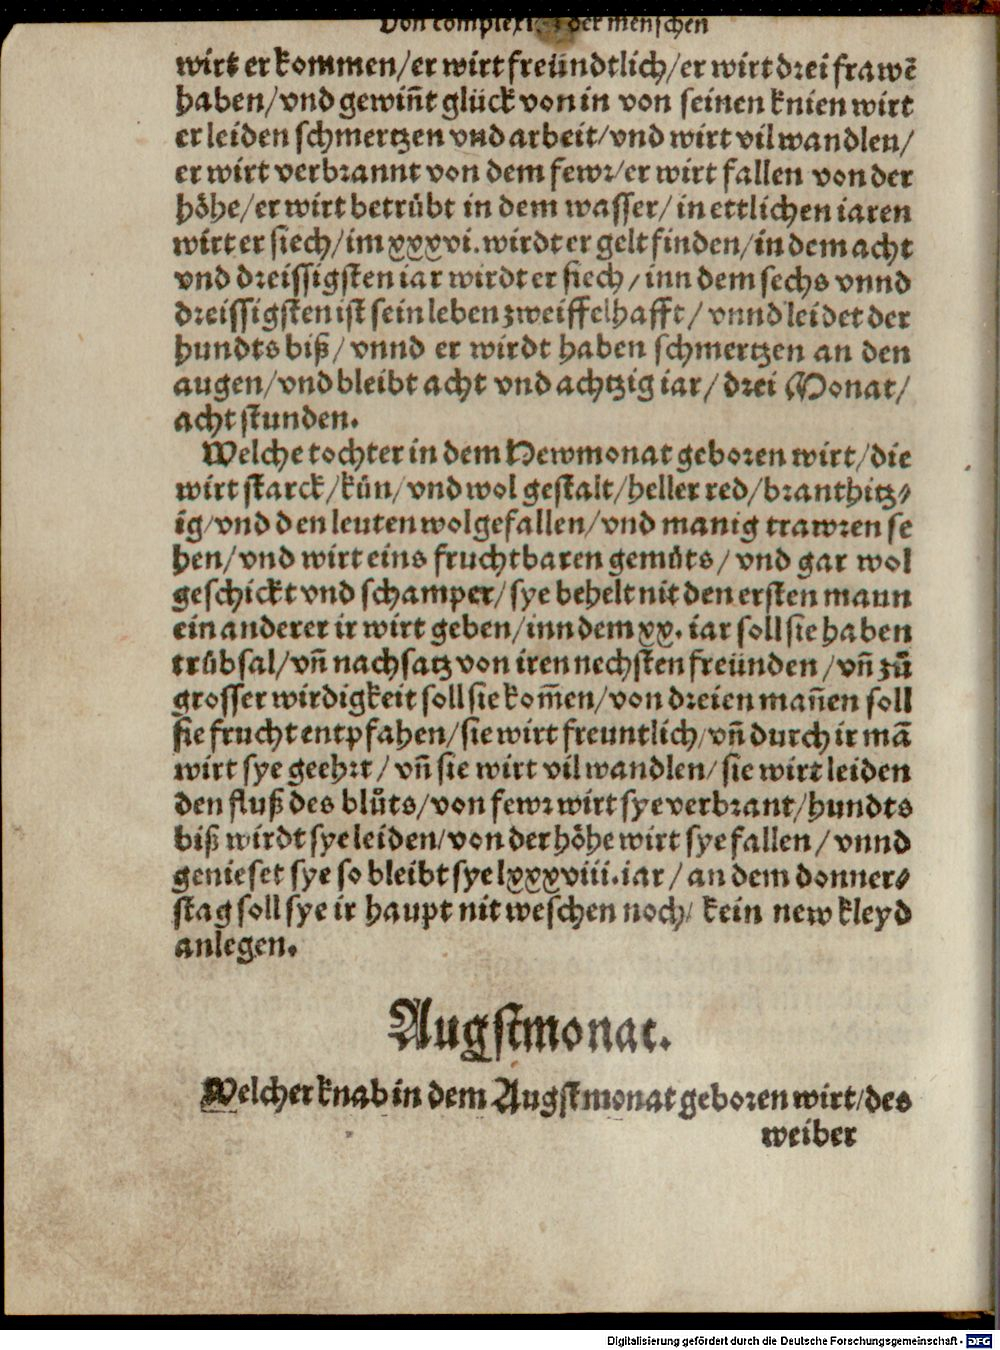 Von complexion der menschen
wirt er kommen/er wirt freündtlich/er wirt drei frawē
haben/vnd gewiñt glück von in von seinen knien wirt
er leiden schmertzen vnd arbeit/vnd wirt vil wandlen/
er wirt verbrannt von dem fewr/er wirt fallen von der
hoͤhe/er wirt betruͤbt in dem wasser/in ettlichen iaren
wirt er siech/im xxxvi. wirdt er gelt finden/in dem acht
vnd dreissigsten iar wirdt er siech/inn dem sechs vnnd
dreissigsten ist sein leben zweiffelhafft/vnnd leidet der
hundts biß/vnnd er wirdt haben schmertzen an den
augen/vnd bleibt acht vnd achtzig iar/drei Monat/
acht stunden.
Welche tochter in dem Hewmonat geboren wirt/die
wirt starck/kuͤn/vnd wol gestalt/heller red/branthitz⸗
ig/vnd den leuten wolgefallen/vnd manig trawren se
hen/vnd wirt eins fruchtbaren gemuͤts/vnd gar wol
geschickt vnd schamper/sye behelt nit den ersten mann
ein anderer ir wirt geben/inn dem xx. iar soll sie haben
truͤbsal/vñ nachsatz von iren nechsten freünden/vñ zů
grosser wirdigkeit soll sie kom̄en/von dreien mañen soll
sie frucht entpfahen/sie wirt freuntlich/vñ durch ir mā
wirt sye geehrt/vñ sie wirt vil wandlen/sie wirt leiden
den fluß des blůts/von fewr wirt sye verbrant/hundts
biß wirdt sye leiden/von der hoͤhe wirt sye fallen/vnnd
genieset sye so bleibt sye lxxxviii. iar/an dem donner⸗
stag soll sye ir haupt nit weschen noch/ kein new kleyd
anlegen.
Augstmonat.
Welcher knab in dem Augstmonat geboren wirt/des
weiber
Digitalisierung gefördert durch die Deutsche Forschungsgemeinschaft - DFG